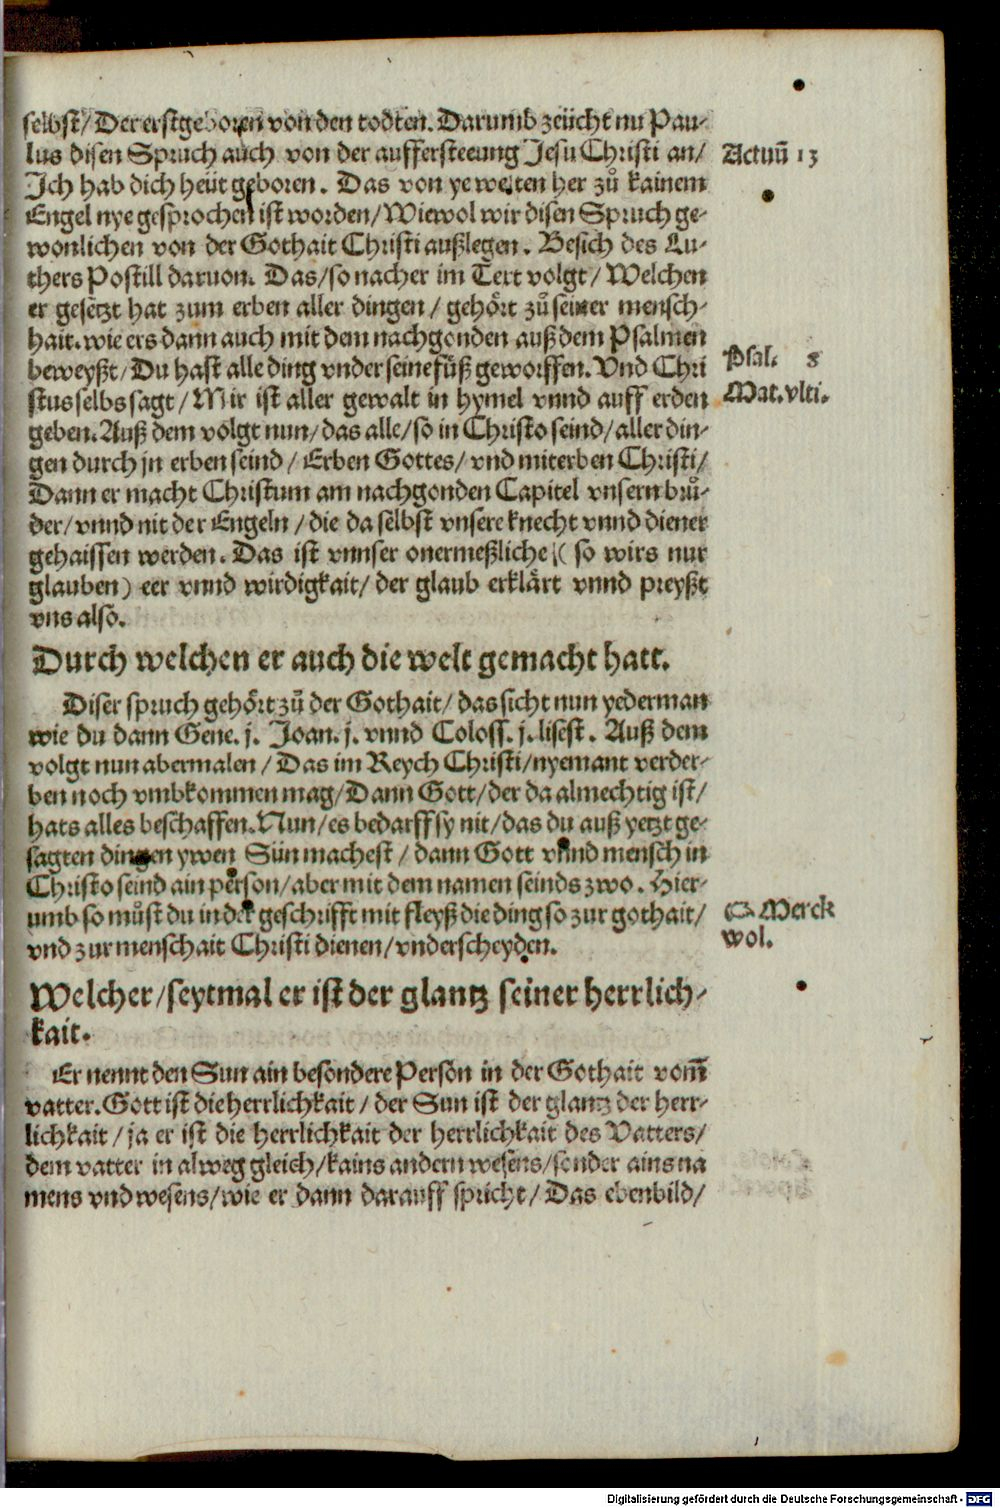 selbst/ Der erstgeboren von den todten. Darumb zeücht nu Pau-
lus disen Spruch auch von der auffersteeung Jesu Christi an/
Actuū 13
Ich hab dich heüt geboren. Das von ye welten her zů kainem
Engel nye gesprochen ist worden/ Wiewol wir disen Spruch ge-
wonlichen von der Gothait Christi außlegen. Besich des Lu-
thers Postill daruon. Das/ so nacher im Text volgt/ Welchen
er gesetzt hat zum erben aller dingen/ gehört zů seiner mensch-
hait. wie ers dann auch mit dem nachgonden auß dem Psalmen
beweyßt/ Du hast alle ding vnder seine füß geworffen. Vnd Chri
Psal. 8
stus selbs sagt/ Mir ist aller gewalt in hymel vnnd auff erden
Mat. vlti.
geben. Auß dem volgt nun/ das alle/ so in Christo seind/ aller din-
gen durch jn erben seind/ Erben Gottes/ vnd miterben Christi/
Dann er macht Christum am nachgonden Capitel vnsern brů-
der/ vnnd nit der Engeln/ die da selbst vnsere knecht vnnd diener
gehaissen werden. Das ist vnnser onermeßliche ( so wirs nur
glauben) eer vnnd wirdigkait/ der glaub erklärt vnnd preyßt
vns also.
Durch welchen er auch die welt gemacht hatt.
Diser spruch gehört zů der Gothait/ das sicht nun yederman
wie du dann Gene. j. Joan. j. vnnd Coloss. j. lisest. Auß dem
volgt nun abermalen/ Das im Reych Christi/ nyemant verder-
ben noch vmbkommen mag/ Dann Gott/ der da almechtig ist/
hats alles beschaffen. Nun/ es bedarff sy nit/ das du auß yetzt ge-
sagten dingen ywen Sün machest/ dann Gott vnnd mensch in
Christo seind ain person/ aber mit dem namen seinds zwo. Hier-
umb so můst du in der geschrifft mit fleyß die ding so zur gothait/
☞ Merck
vnd zur menschait Christi dienen/ vnderscheyden.
wol.
Welcher/ seytmal er ist der glantz seiner herrlich-
kait.
Er nennt den Sun ain besondere Person in der Gothait vom̄
vatter. Gott ist die herrlichkait/ der Sun ist der glantz der herr-
lichkait/ ja er ist die herrlichkait der herrlichkait des Vatters/
dem vatter in alweg gleich/ kains andern wesens/ sonder ains na
mens vnd wesens/ wie er dann darauff spricht/ Das ebenbild/
Digitalisierung gefördert durch die Deutsche Forschungsgemeinschaft - DFG